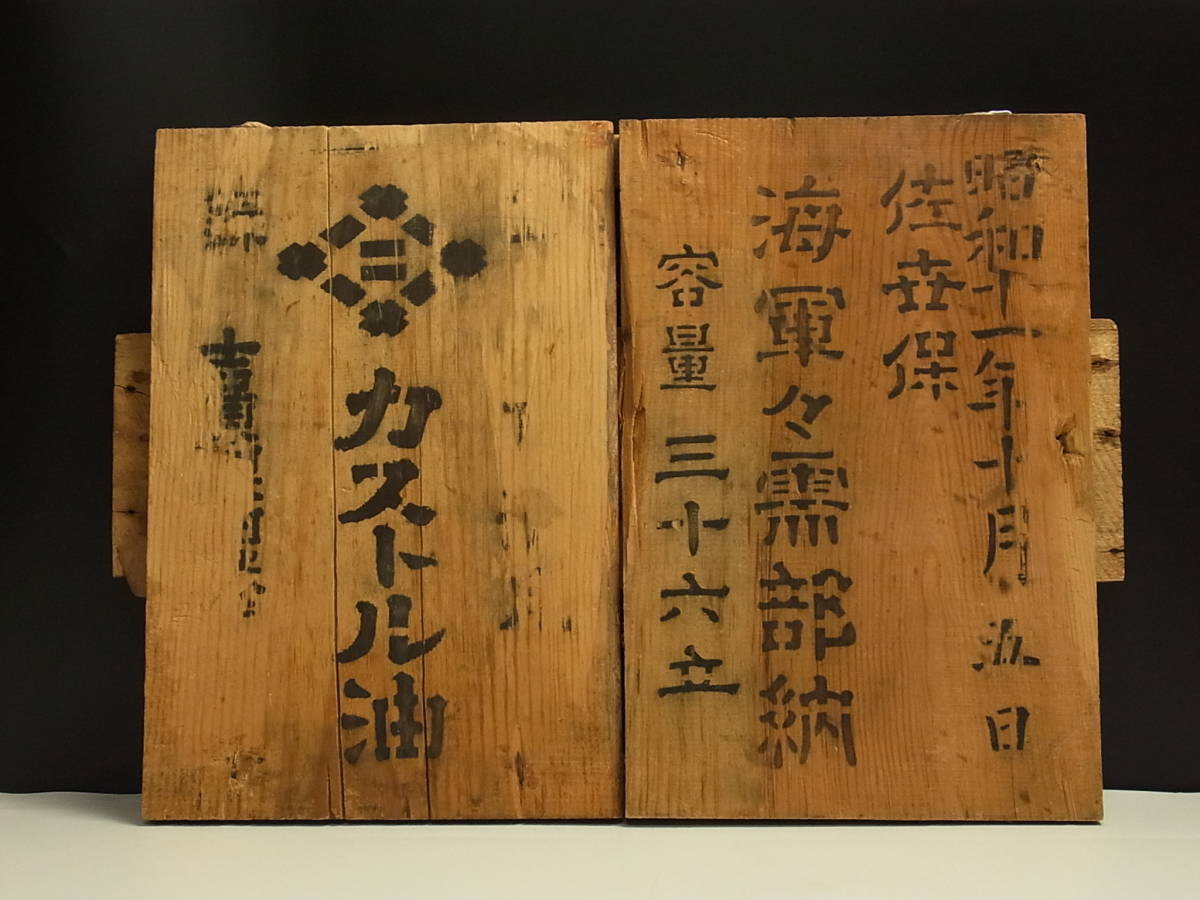 昭和十一年十月五日
佐世保
海軍々需部納
容量三十六立
三
カストル油